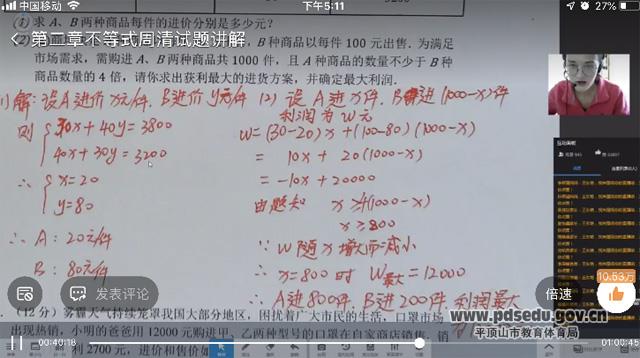 中国移动
下午5:11
(1) 求 A、B 两种商品每件的进价分别是多少元?
第二章不等式周清试题讲解
B 种商品以每件 100 元出售. 为满足
市场需求, 需购进 A、B 两种商品共 1000 件, 且 A 种商品的数量不少于 B 种
商品数量的 4 倍, 请你求出获利最大的进货方案, 并确定最大利润.
解: 设A进价x元/件, B进价y元/件
则 30x+40y=3800
40x+30y=3200
∴ x=20
y=80
∴ A: 20元/件
B: 80元/件
(2) 设A进x件, B进(1000-x)件
利润为W元
W=(30-20)x+(100-80)(1000-x)
= 10x+20(1000-x)
= -10x+20000
由题知 x≥4(1000-x)
x≥800
∵ W随x增大而减小
∴ x=800时 W最大=12000
∴ A进800件, B进200件, 利润最大
(12 分) 雾霾天气持续笼罩我国大部分地区, 困扰着广大市民的生活, 口罩市场
出现热销, 小明的爸爸用 12000 元购进甲、乙两种型号的口罩在自家商店销售, 销
利 2700 元, 进价和售价如
发表评论
倍速
10.53万
www.pdsedu.gov.cn
平顶山市教育体育局
00:40:18
01:00:45